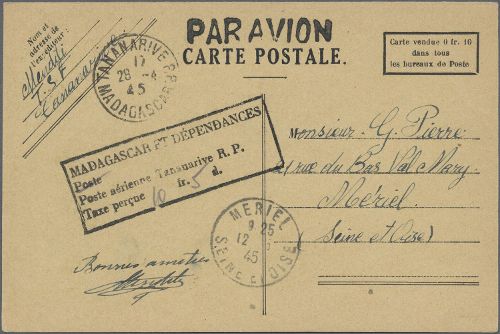 PAR AVION
CARTE POSTALE.
Nom et
adresse de
l'expéditeur:
T.S.F
Tananarive
TANANARIVE R.P.
17
28 -4
45
MADAGASCAR
Carte vendue 0 fr. 10
dans tous
les bureaux de Poste
MADAGASCAR ET DÉPENDANCES
Poste
Poste aérienne Tananarive R. P.
Taxe perçue 10 fr. 5 d.
Monsieur G. Pierre
rue du Bas Val Mary
Mériel
(Seine et Oise)
MERIEL
9 25
12
45
SEINE ET OISE
Bonnes amitiés